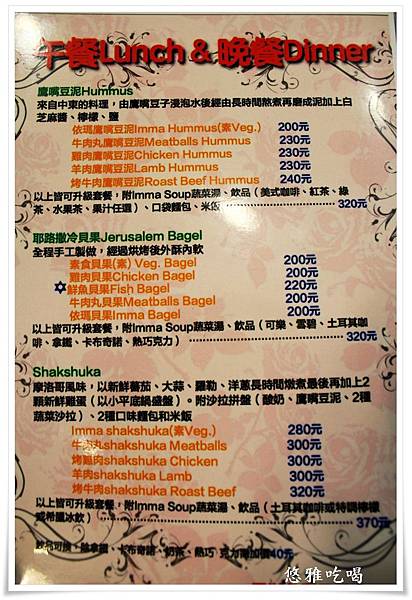 午餐Lunch & 晚餐Dinner
鷹嘴豆泥Hummus
來自中東的料理，由鷹嘴豆子浸泡水後經由長時間熬煮再磨成泥加上白
芝麻醬、檸檬、鹽
依瑪鷹嘴豆泥Imma Hummus(素Veg.) 200元
牛肉丸鷹嘴豆泥Meatballs Hummus 230元
雞肉鷹嘴豆泥Chicken Hummus 230元
羊肉鷹嘴豆泥Lamb Hummus 230元
烤牛肉鷹嘴豆泥Roast Beef Hummus 240元
以上皆可升級套餐，附Imma Soup蔬菜湯、飲品（美式咖啡、紅茶、綠
茶、水果茶、果汁任選）、口袋麵包、米飯 320元
耶路撒冷貝果Jerusalem Bagel
全程手工製做，經過烘烤後外酥內軟
素食貝果(素) Veg. Bagel 200元
雞肉貝果Chicken Bagel 200元
鮮魚貝果Fish Bagel 220元
牛肉丸貝果Meatballs Bagel 200元
依瑪貝果Imma Bagel 200元
以上皆可升級套餐，附Imma Soup蔬菜湯、飲品（可樂、雪碧、土耳其咖
啡、拿鐵、卡布奇諾、熱巧克力） 320元
Shakshuka
摩洛哥風味，以新鮮蕃茄、大蒜、羅勒、洋蔥長時間燉煮最後再加上2
顆新鮮雞蛋（以小平底鍋盛盤）。附沙拉拼盤（酸奶、鷹嘴豆泥、2種
蔬菜沙拉）、2種口味麵包和米飯
Imma shakshuka(素Veg.) 280元
牛肉丸shakshuka Meatballs 300元
烤雞肉shakshuka Chicken 300元
羊肉shakshuka Lamb 300元
烤牛肉shakshuka Roast Beef 320元
以上皆可升級套餐，附Imma Soup蔬菜湯、飲品（土耳其咖啡或特調檸檬
或希臘冰飲） 370元
飲品可換、除拿鐵、卡布奇諾、奶茶、熱巧 克力需加價40元
悠雅吃喝